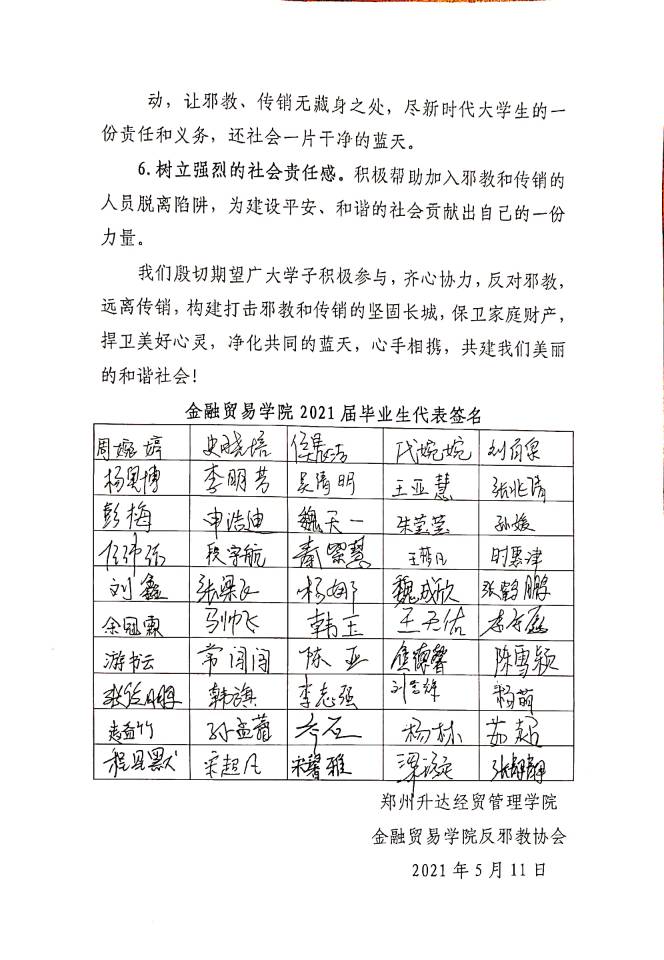 动，让邪教、传销无藏身之处，尽新时代大学生的一
份责任和义务，还社会一片干净的蓝天。
6.树立强烈的社会责任感。积极帮助加入邪教和传销的
人员脱离陷阱，为建设平安、和谐的社会贡献出自己的一份
力量。
我们殷切期望广大学子积极参与，齐心协力，反对邪教，
远离传销，构建打击邪教和传销的坚固长城，保卫家庭财产，
捍卫美好心灵，净化共同的蓝天，心手相携，共建我们美丽
的和谐社会！
金融贸易学院 2021 届毕业生代表签名
周婉婷 史晓培 代婉婉
李明芳 吴清明 王亚慧 张兆清
彭梅 申浩迪 魏天一 朱莹莹 孙媛
段宇航 秦翠慧
刘鑫 杨娜 魏成欣 张鹤鹏
马帅飞 韩玉 王天佑
游书云 常闯闯 陈亚 焦德馨 陈雪颖
韩旗 李志强 杨萌
孟竹 杨林 茹超
宋超凡 宋馨雅
郑州升达经贸管理学院
金融贸易学院反邪教协会
2021 年 5 月 11 日